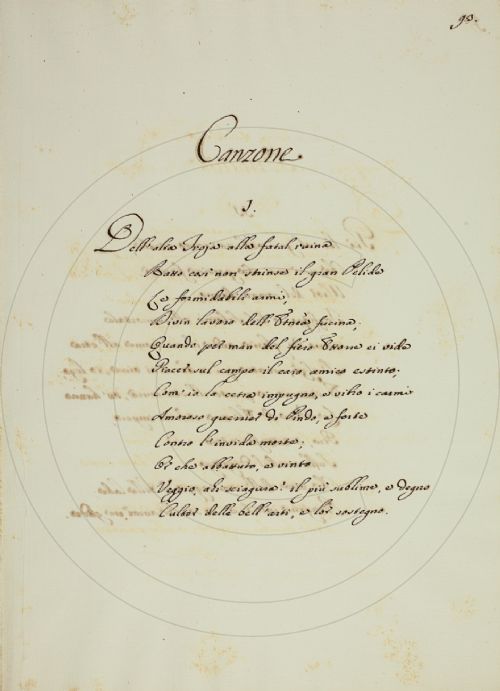 93.
Canzone.
1.
Dell'alta Troja alla fatal ruina
Ratto così non strinse il gran Pelide
Le formidabili armi,
Divin lavoro dell'Etnea fucina;
Quando per man del fiero Ettorre ei vide
Giacer sul campo il caro amico estinto;
Com'io la cetra impugno, e vibro i carmi
Amoroso guerrier di Pindo, e forte
Contro l'invida morte;
Or che abbattuto, e vinto
Veggio, ahi sciagura! il più sublime, e degno
Cultor delle bell'arti, e lor sostegno.